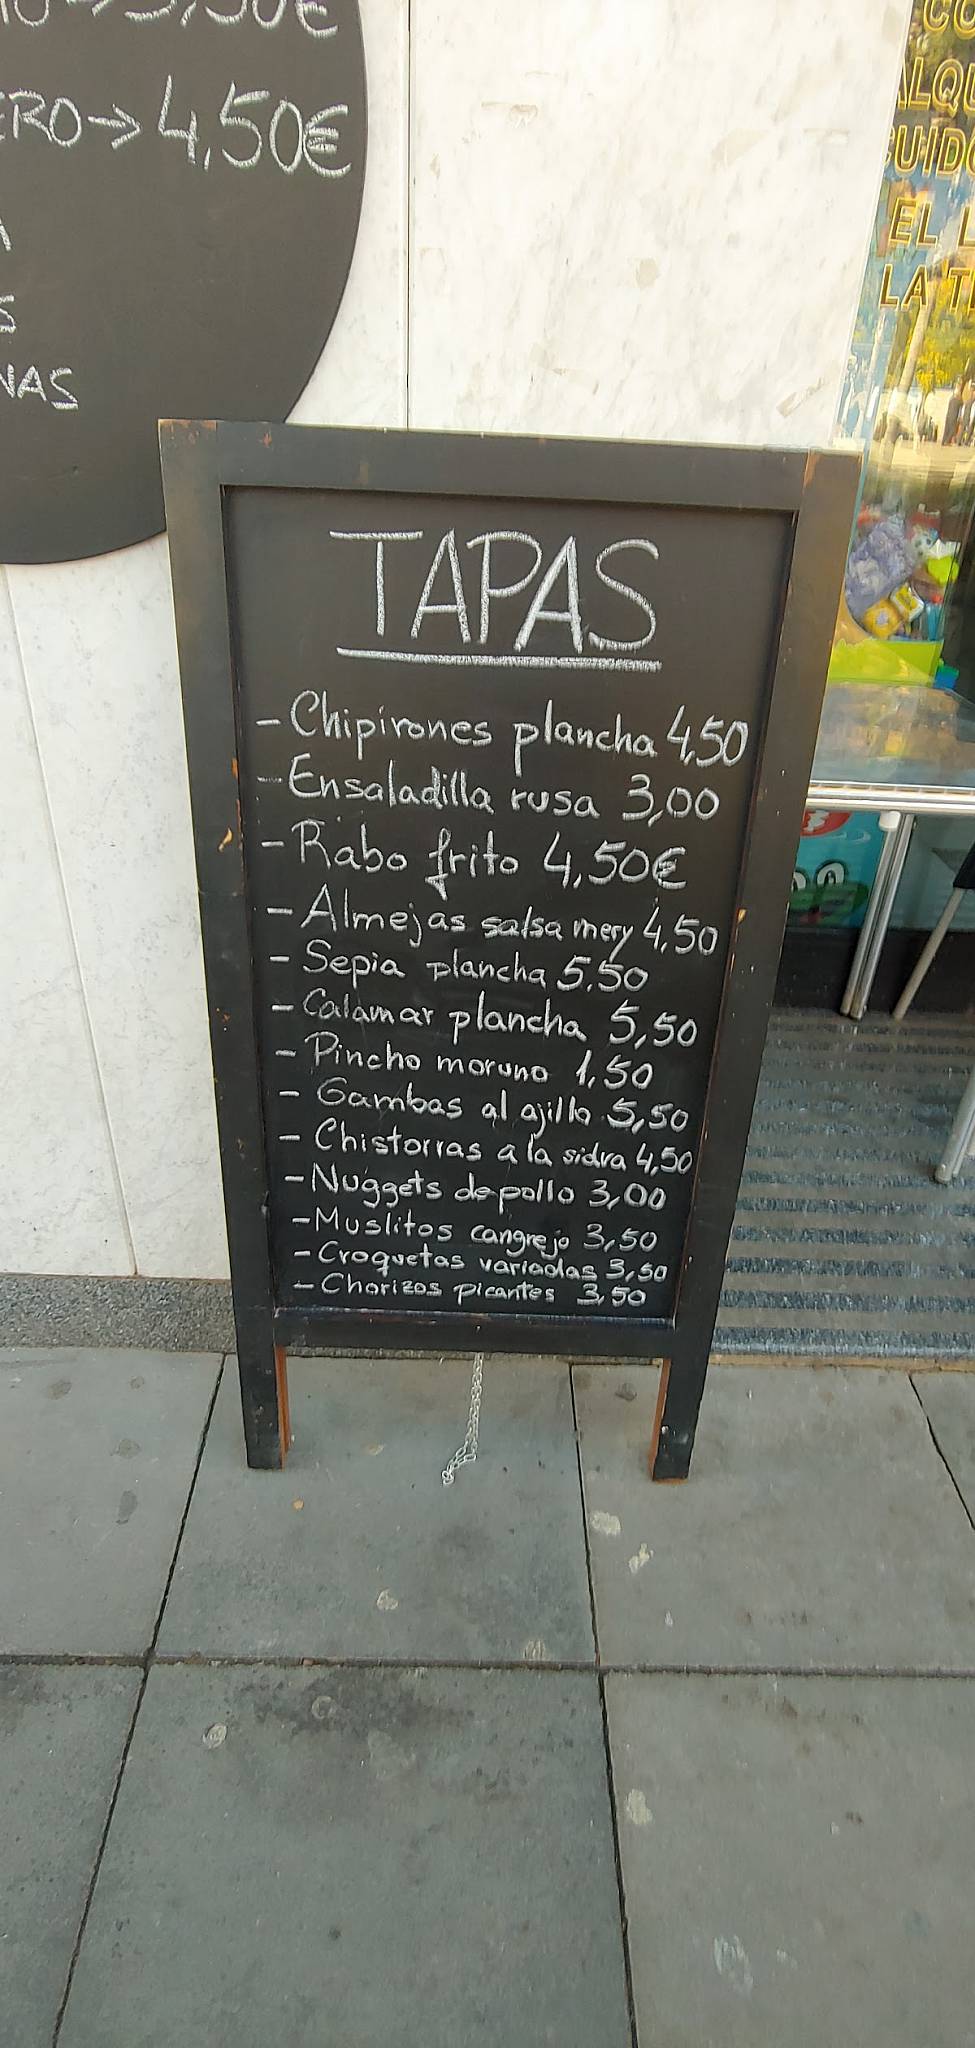 4,50€
TAPAS
- Chipirones plancha 4,50
- Ensaladilla rusa 3,00
- Rabo frito 4,50€
- Almejas salsa mery 4,50
- Sepia plancha 5.50
- Calamar plancha 5,50
- Pincho moruno 1,50
- Gambas al ajillo 5,50
- Chistorras a la sidra 4,50
- Nuggets de pollo 3,00
- Muslitos cangrejo 3,50
- Croquetas variadas 3,50
- Chorizos picantes 3,50
EL
LA